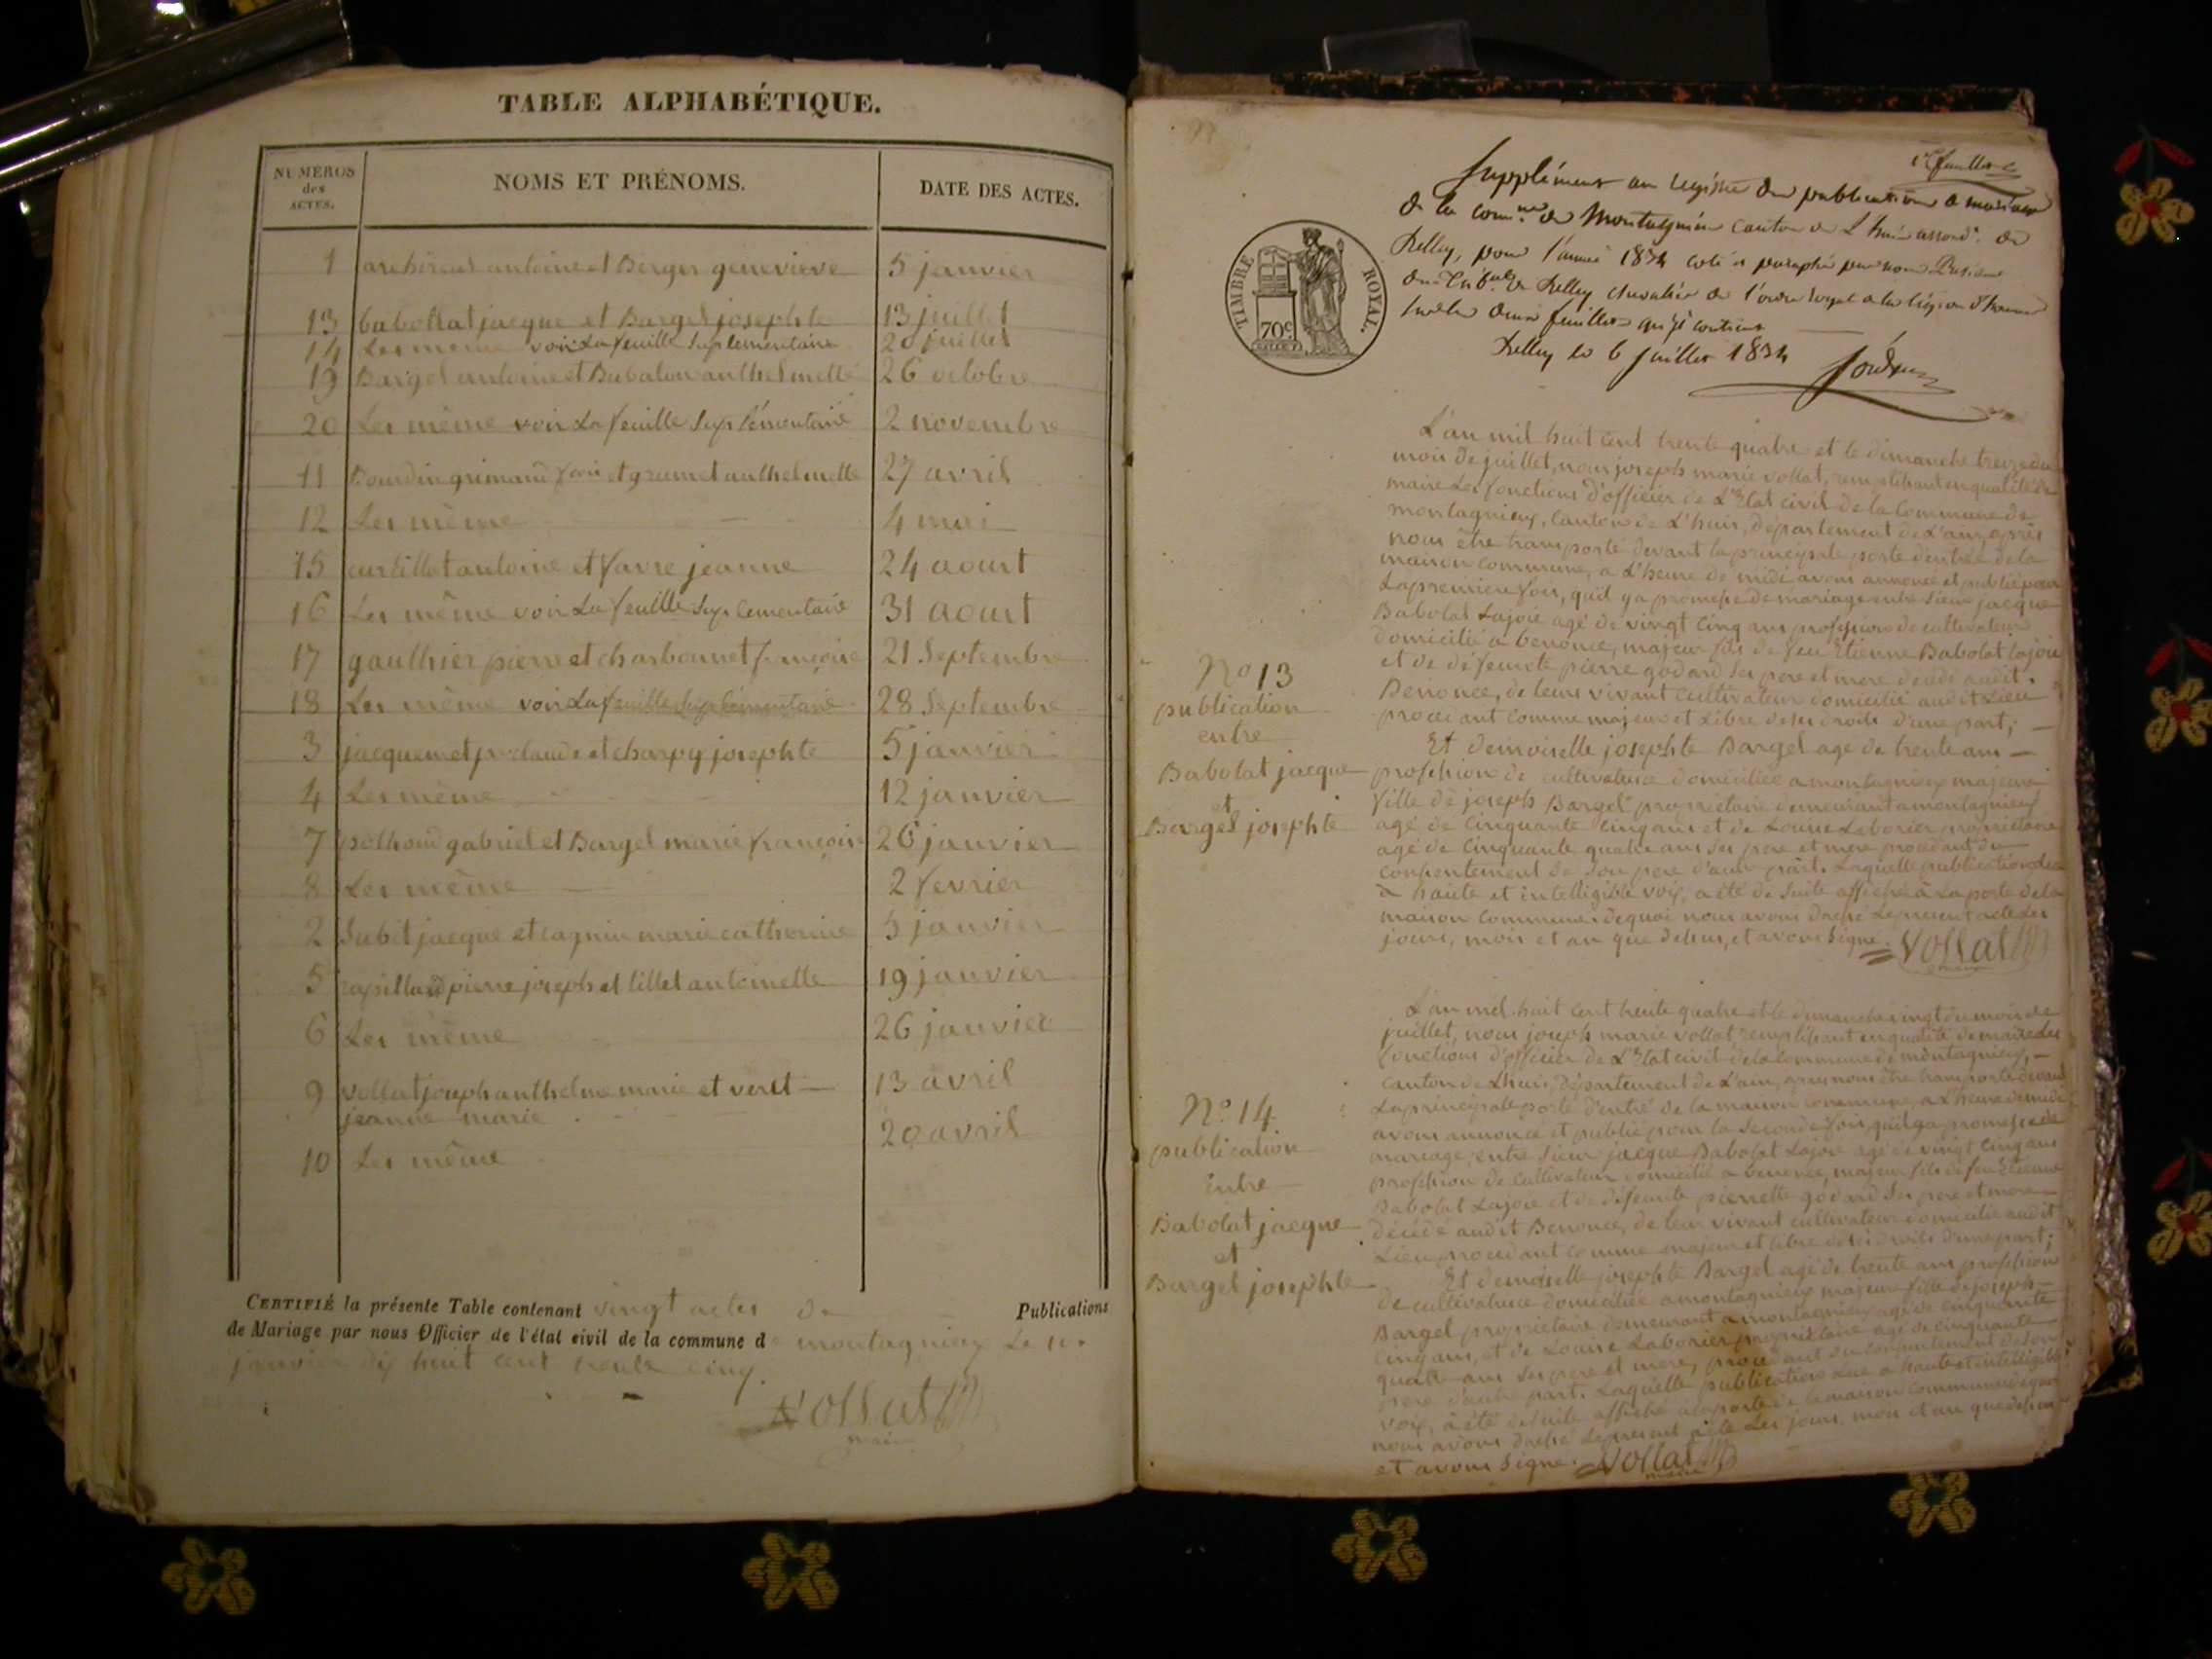 TABLE ALPHABÉTIQUE.
NUMEROS des ACTES.
NOMS ET PRÉNOMS.
DATE DES ACTES.
1 antoine et Berger genevieve 5 janvier
13 babollat jacque et Bargel josephte 13 juillet
14 Les meme voir La feuille Suplementaire 20 juillet
19 Bargel antoine et Babalat anthelmette 26 octobre
20 Les même voir La feuille Suplémentaire 2 novembre
11 Bourdin grimaud et grumet anthelmette 27 avril
12 Les même 4 mai
15 curtillet antoine et favre jeanne 24 aout
16 Les même voir La feuille Suplementaire 31 aout
17 gaulthier pierre et charbonnet françoise 21 Septembre
18 Les même voir La feuille Suplémentaire 28 Septembre
3 jacquemet claude et charpy josephte 5 janvier
4 Les même 12 janvier
7 gabriel et Bargel marie françoise 26 janvier
8 Les même 2 fevrier
2 Subit jacque et cagnin marie catherine 5 janvier
5 rapillard pierre joseph et tillet antoinette 19 janvier
6 Les même 26 janvier
9 vollat joseph anthelme marie et veret 13 avril
jeanne marie
10 Les même 20 avril
CERTIFIÉ la présente Table contenant vingt actes de Publications
de Mariage par nous Officier de l'état civil de la commune de montagnieu Le
janvier dix huit cent trente cinq.
Vollat
maire
1er feuillet
Supplément au registre des publications de mariage
de la comne de Montagnieu canton de L'huis arrondt de
Belley, pour l'année 1834 coté et paraphé par nous Président
du Tribal de Belley chevalier de l'ordre royal de la légion d'honneur
feuillets qu'il contient
Belley le 6 juillet 1834
TIMBRE ROYAL.
70c
L'an mil huit cent trente quatre et le dimanche treize du
mois de juillet, nous joseph marie vollat, remplissant en qualité de
maire Les fonctions d'officier de L'Etat civil de la Commune de
montagnieu, Canton de L'huis, département de L'ain, après
nous être transporté devant la principale porte d'entrée de la
maison commune, a L'heure de midi avons annoncé et publié pour
La premiere fois, qu'il y a promesse de mariage entre Sieur jacque
Babolat Lajoie agé de vingt cinq ans profession de cultivateur
domicilié a benonce, majeur fils de feu Etienne Babolat Lajoie
et de défeunte pierre godard Ses pere et mere décédé audit
Benonce, de leurs vivant cultivateur domicilié audit Lieu
procédant comme majeur et Libre de ses droits d'une part;
Et demoiselle josephte Bargel agé de trente ans
profession de cultivatrice domiciliée a montagnieu majeure
fille de joseph Bargel propriétaire demeurant a montagnieu
agé de Cinquante cinq ans et de Louise Laborier propriétaire
agé de Cinquante quatre ans Ses pere et mere procédant du
consentement de Son pere d'autre part. Laquelle publication lue
a haute et intelligible voix, a été de Suite affiché à La porte de la
maison commune. dequoi nous avons dressé Le present acte Les
jours, mois et an que dessus, et avons Signé. Vollat
maire
No 13
publication
entre
Babolat jacque
et
Bargel josephte
L'an mil huit cent trente quatre et le dimanche vingt du mois de
juillet, nous joseph marie vollat remplissant en qualité de maire Les
fonctions d'officier de L'Etat civil de la Commune de montagnieu,
canton de Lhuis, Département de L'ain, apres nous être transporté devant
La principale porte d'entré de la maison commune, a L'heure de midi
avons annoncé et publié pour la Seconde fois, qu'il y a promesse de
mariage, entre Sieur jacque Babolat Lajoie agé de vingt cinq ans
profession de Cultivateur domicilié a benonce, majeur fils de feu Etienne
Babolat Lajoie et de défeunte pierrette godard Ses pere et mere
décédé audit Benonce, de leur vivant cultivateur domicilié audit
Lieu procédant comme majeur et libre de ses droits d'une part;
Et demoiselle josephte Bargel agé de trente ans profession
de cultivatrice domiciliée a montagnieu majeure fille de joseph
Bargel propriétaire demeurant a montagnieu agé de cinquante
Cinq ans, et de Louise Laborier propriétaire agé de cinquante
quatre ans Ses pere et mere, procédant du consentement de Son
pere d'autre part. Laquelle publication Lue a haute et intelligible
voix, à été de Suite affiché a la porte de la maison commune dequoi
nous avons dressé Le present acte Les jours mois et an que dessus
et avons Signé. Vollat
maire
No 14
publication
Entre
Babolat jacque
et
Bargel josephte